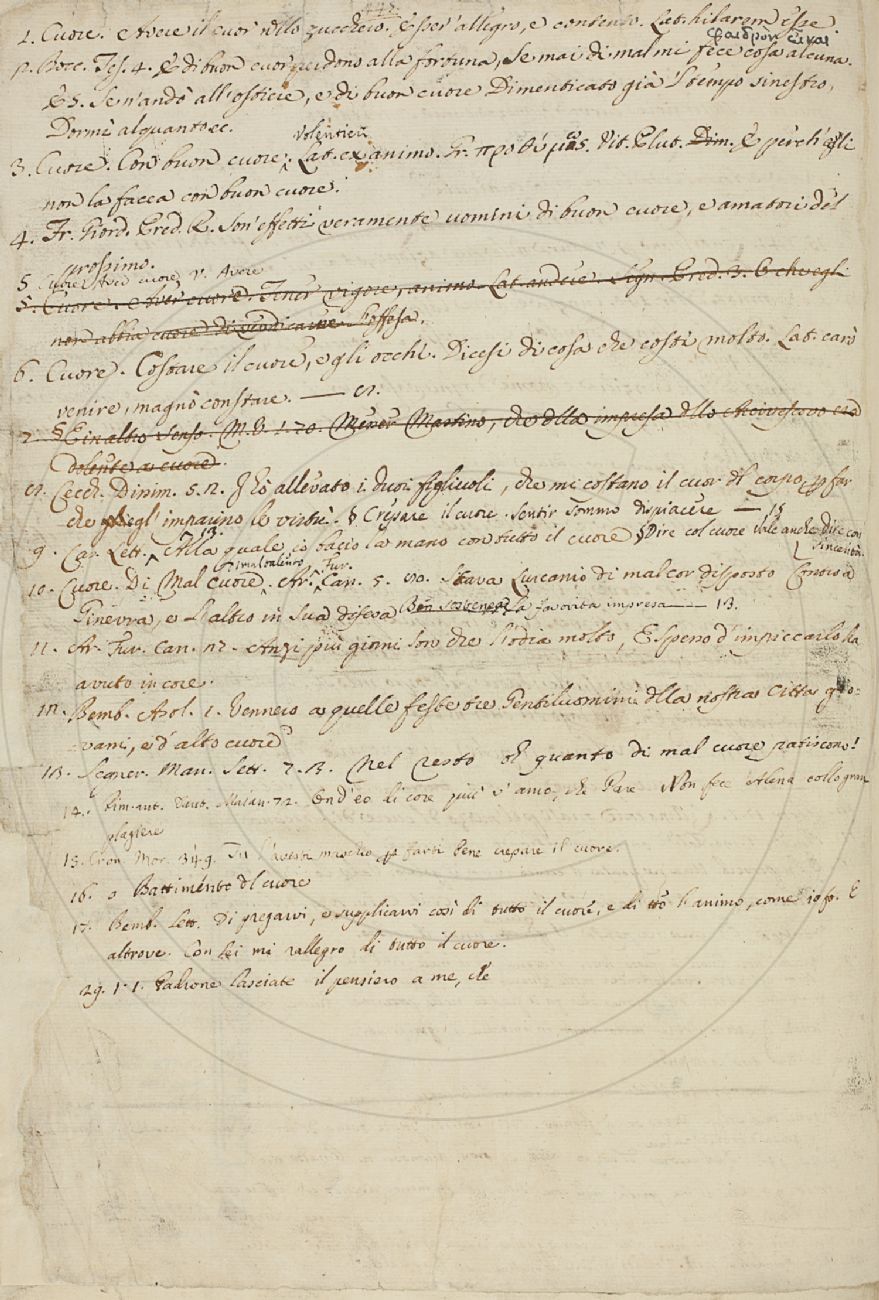 1. Cuore. Avere il cuor nello zucchero. Esser' allegro, e contento. Lat. hilarem esse
φαιδρὸν εἶναι
2. Bocc. Tes. 4. E di buon cuor rendono alla fortuna, Se mai di mal mi fece cosa alcuna.
E 5. Se n'andò all'ostiere, e di buon cuore Dimenticato già 'l tempo sinestro,
Dormì alquanto ec.
volentieri
3. Cuore. Con buon cuore. Lat. ex animo. Gr. προθύμως. Vit. Plut. Dim. E perch'egli
non la facea con buon cuore.
4. Fr. Giord. Pred. R. Son' effetti veramente uomini di buon cuore, e amatori del
prossimo.
5 Cuore, Aver cuore, v. Avere
5. Cuore. Aver cuore. Tener vigore, animo. Lat. audere. Sign. Pred. 3. 6 ch'egli
non abbia cuore di vendicarne l'offesa.
6. Cuore. Costare il cuore, e gli occhi. Dicesi di cosa che costi molto. Lat. caro
venire, magno constare. —
7. § E in altro senso. M.V. 1. 70. Messer Martino, che della impresa dello Arcivescovo era
dolente a cuore.
Cecch. Dissim. 5. 2. Io allevato i duoi figliuoli, che mi costano il cuor del corpo, per far
che egl' imparino le virtù. § Crepare il cuore. Sentir sommo dispiacere — 15
9. Car. Lett. Alla quale io bacio la mano con tutto il cuore § Dire col cuore vale anche Dire con
sincerità.
13.
Malvolentieri Fur.
10. Cuore. Di Mal cuore. Ar. Can. 5. Stava Lurcanio di mal cor disposto Contra
Ginevra, e l'altro in sua difesa Ben sostenea la favorita impresa — 13.
11. Ar. Fur. Can. Anzi più giorni son che l'odia molto, E spesso d'impiccarlo ha
avuto in core.
12. Bemb. Asol. 1. Vennero a quelle feste tre Gentiluomini della nostra Citta gio-
vani, e d'alto cuore
13. Segner. Man. Sett. 7. 3. Nel resto oh quanto di mal cuore patiscono!
14. Rim. ant. Maian. 72. Ond'eo di core più v'amo, che Pare Non fece Alena collo gran
plagiere
15. Cron. Mor. 349. Tu l'avesti maschio per farti bene crepare il cuore.
16. o Battimento del cuore
17. Bemb. Lett. Di pregarvi, e supplicarvi così di tutto il cuore, e di tto l'animo, come io fo. E
altrove. Con Lei mi rallegro di tutto il cuore.
29. 1. 1. Padrone lasciate il pensiero a me, che